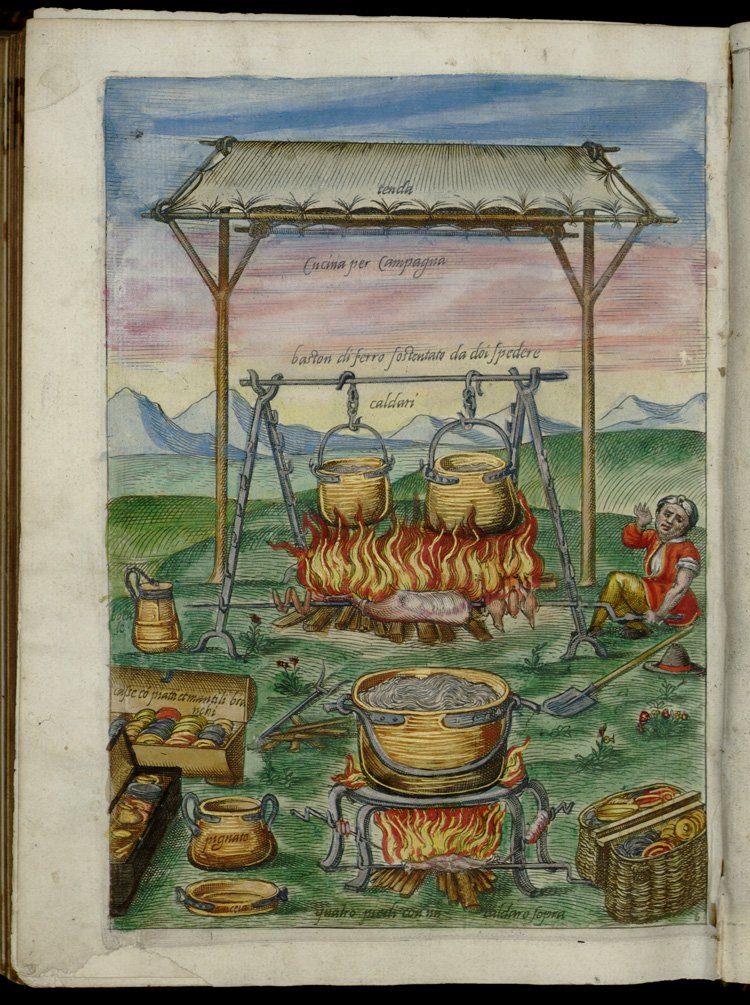 tenda
Cucina per Campagna
baston di ferro sostentato da doi spedere
caldari
casse cō piati et mantili bia
nchi
pignato
Quatro piedi con un caldaro sopra